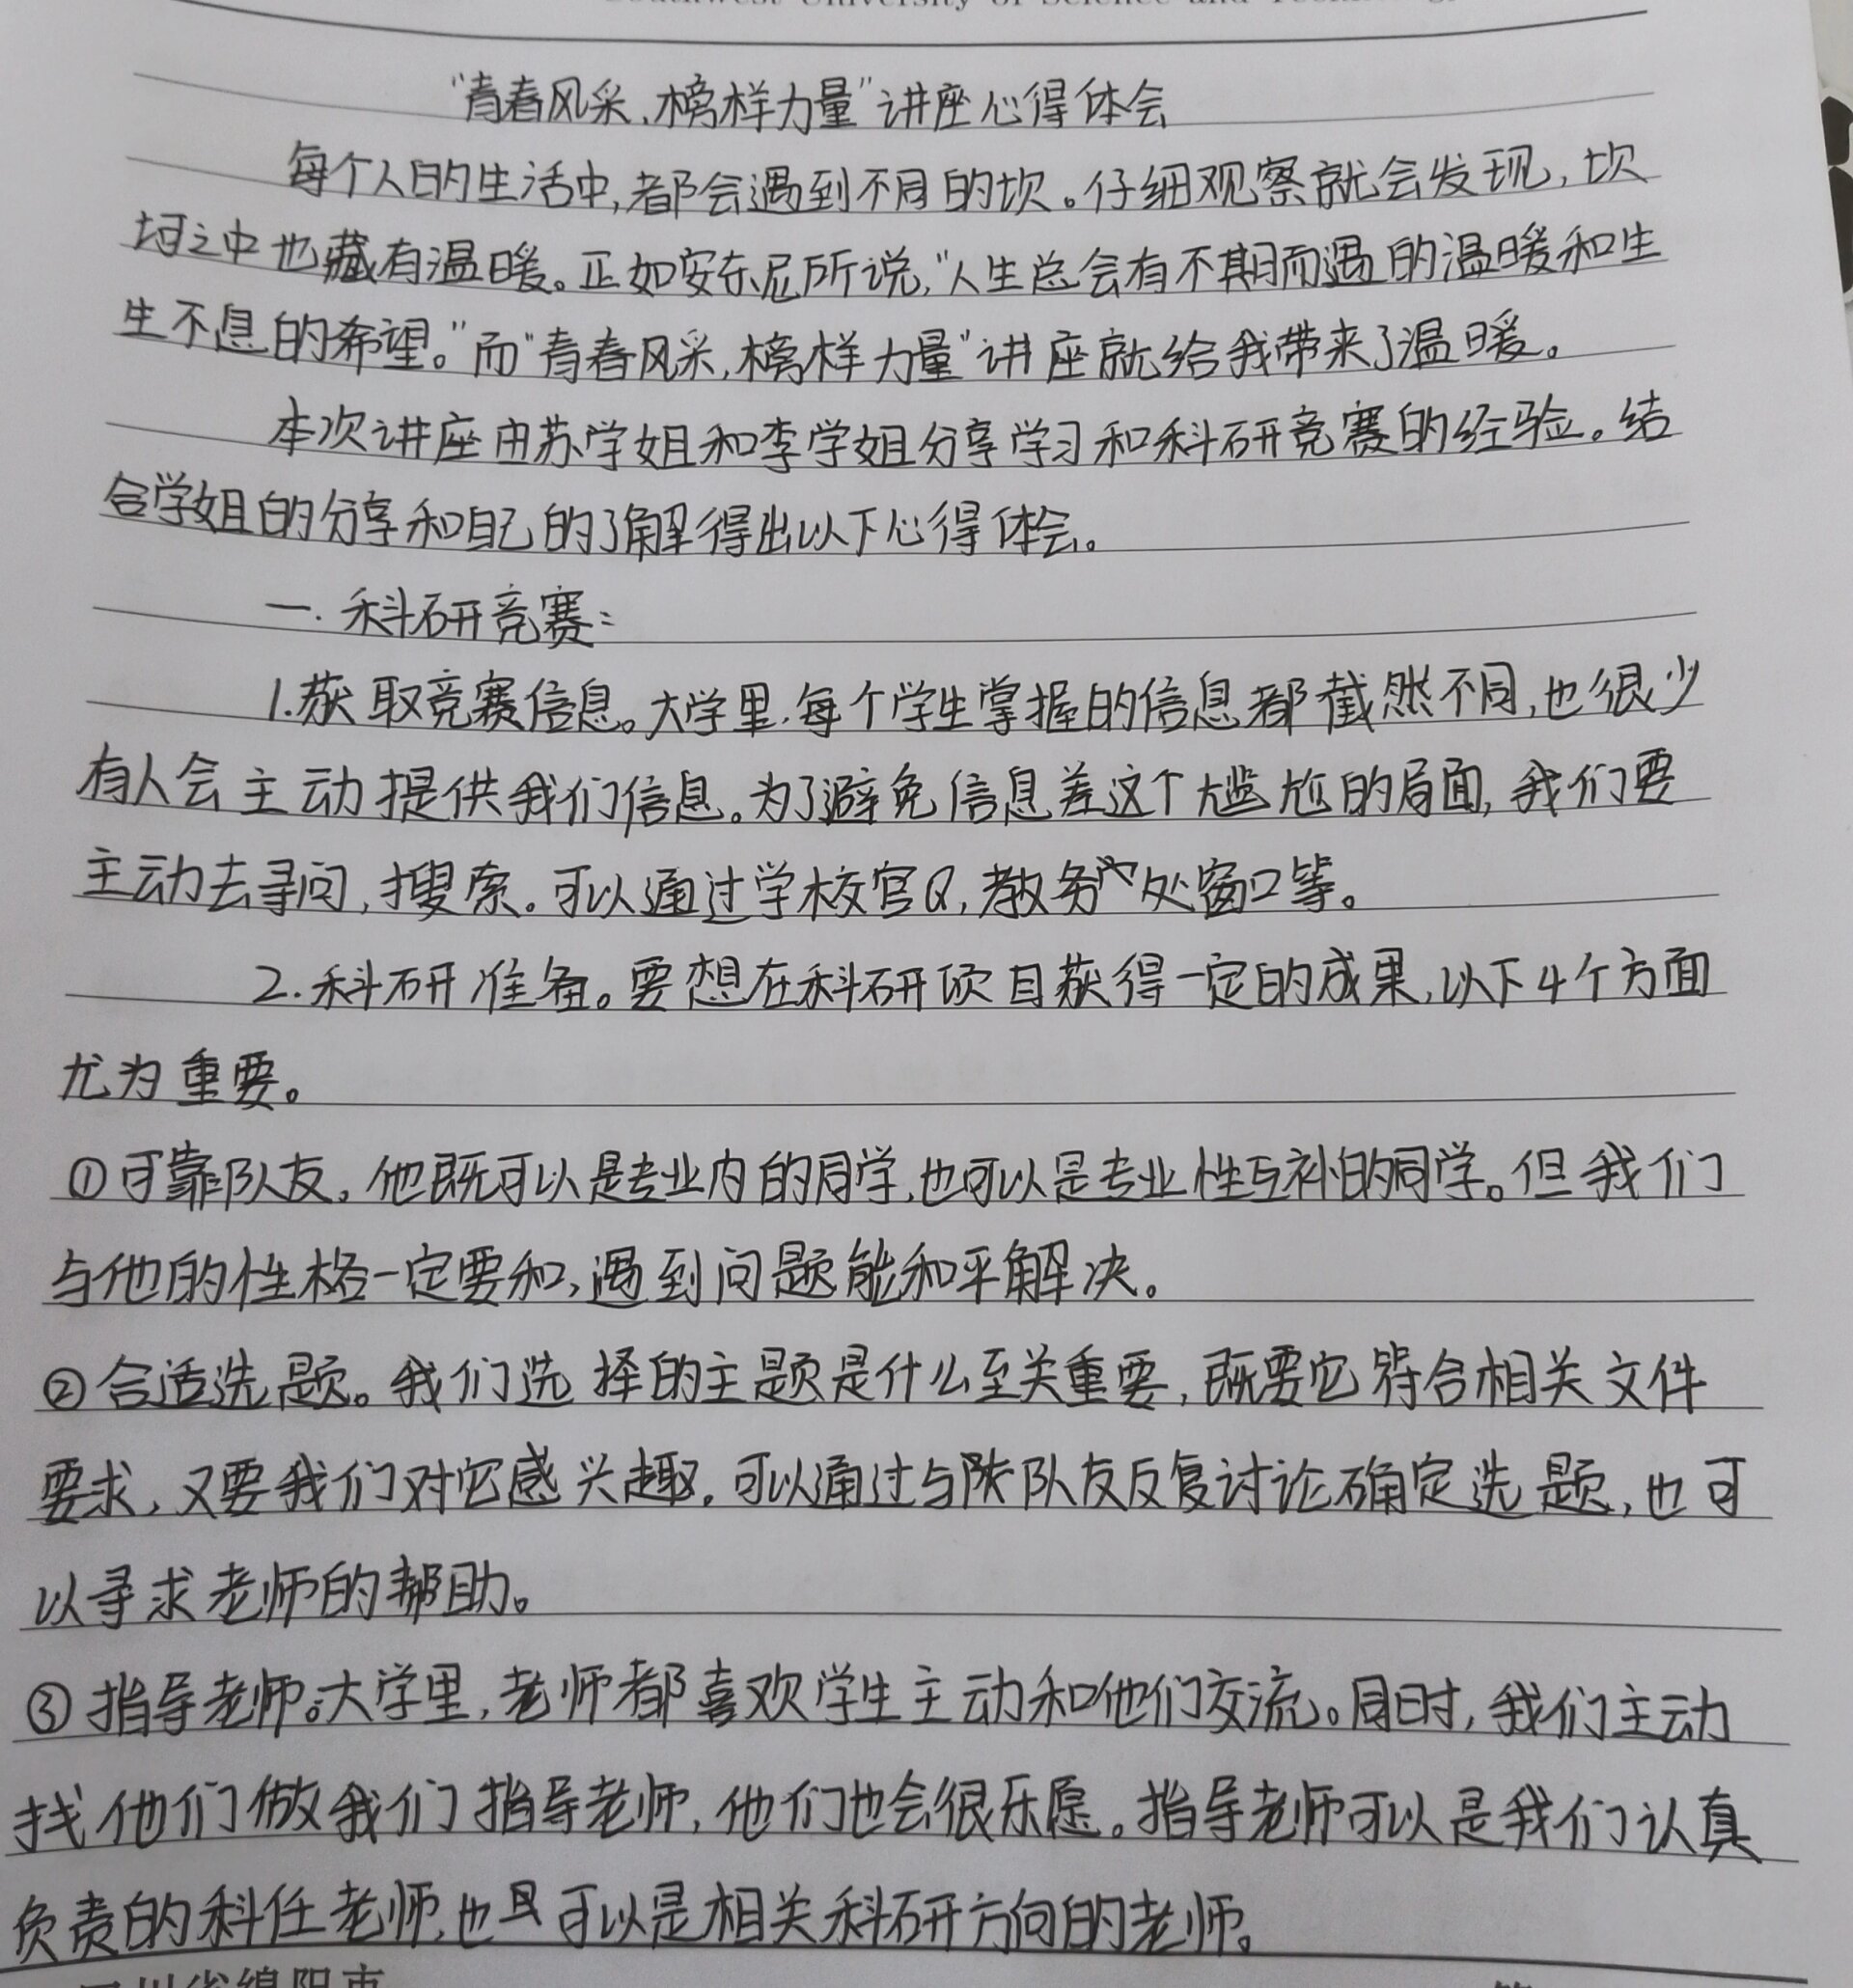 Southwest University of Science and Technolog
“青春风采，榜样力量”讲座心得体会
每个人的生活中，都会遇到不同的坎。仔细观察就会发现，坎
坷之中也藏有温暖。正如安东尼所说，“人生总会有不期而遇的温暖和生
生不息的希望。”而“青春风采，榜样力量”讲座就给我带来了温暖。
本次讲座由苏学姐和李学姐分享学习和科研竞赛的经验。结
合学姐的分享和自己的了解得出以下心得体会。
一．科研竞赛：
1.获取竞赛信息。大学里，每个学生掌握的信息都截然不同，也很少
有人会主动提供我们信息。为了避免信息差这个尴尬的局面，我们要
主动去寻问，搜索。可以通过学校官Q，教务处窗口等。
2.科研准备。要想在科研项目获得一定的成果，以下4个方面
尤为重要。
①可靠队友。他既可以是专业内的同学，也可以是专业性互补的同学。但我们
与他的性格一定要和，遇到问题能和平解决。
②合适选题。我们选择的主题是什么至关重要，既要它符合相关文件
要求，又要我们对它感兴趣。可以通过与队友反复讨论确定选题，也可
以寻求老师的帮助。
③指导老师。大学里，老师都喜欢学生主动和他们交流。同时，我们主动
找他们做我们指导老师，他们也会很乐愿。指导老师可以是我们认真
负责的科任老师，也可以是相关科研方向的老师。
四川省绵阳市